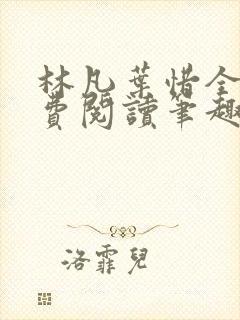 林凡葉惜全
費閱讀筆趣
洛霏兒